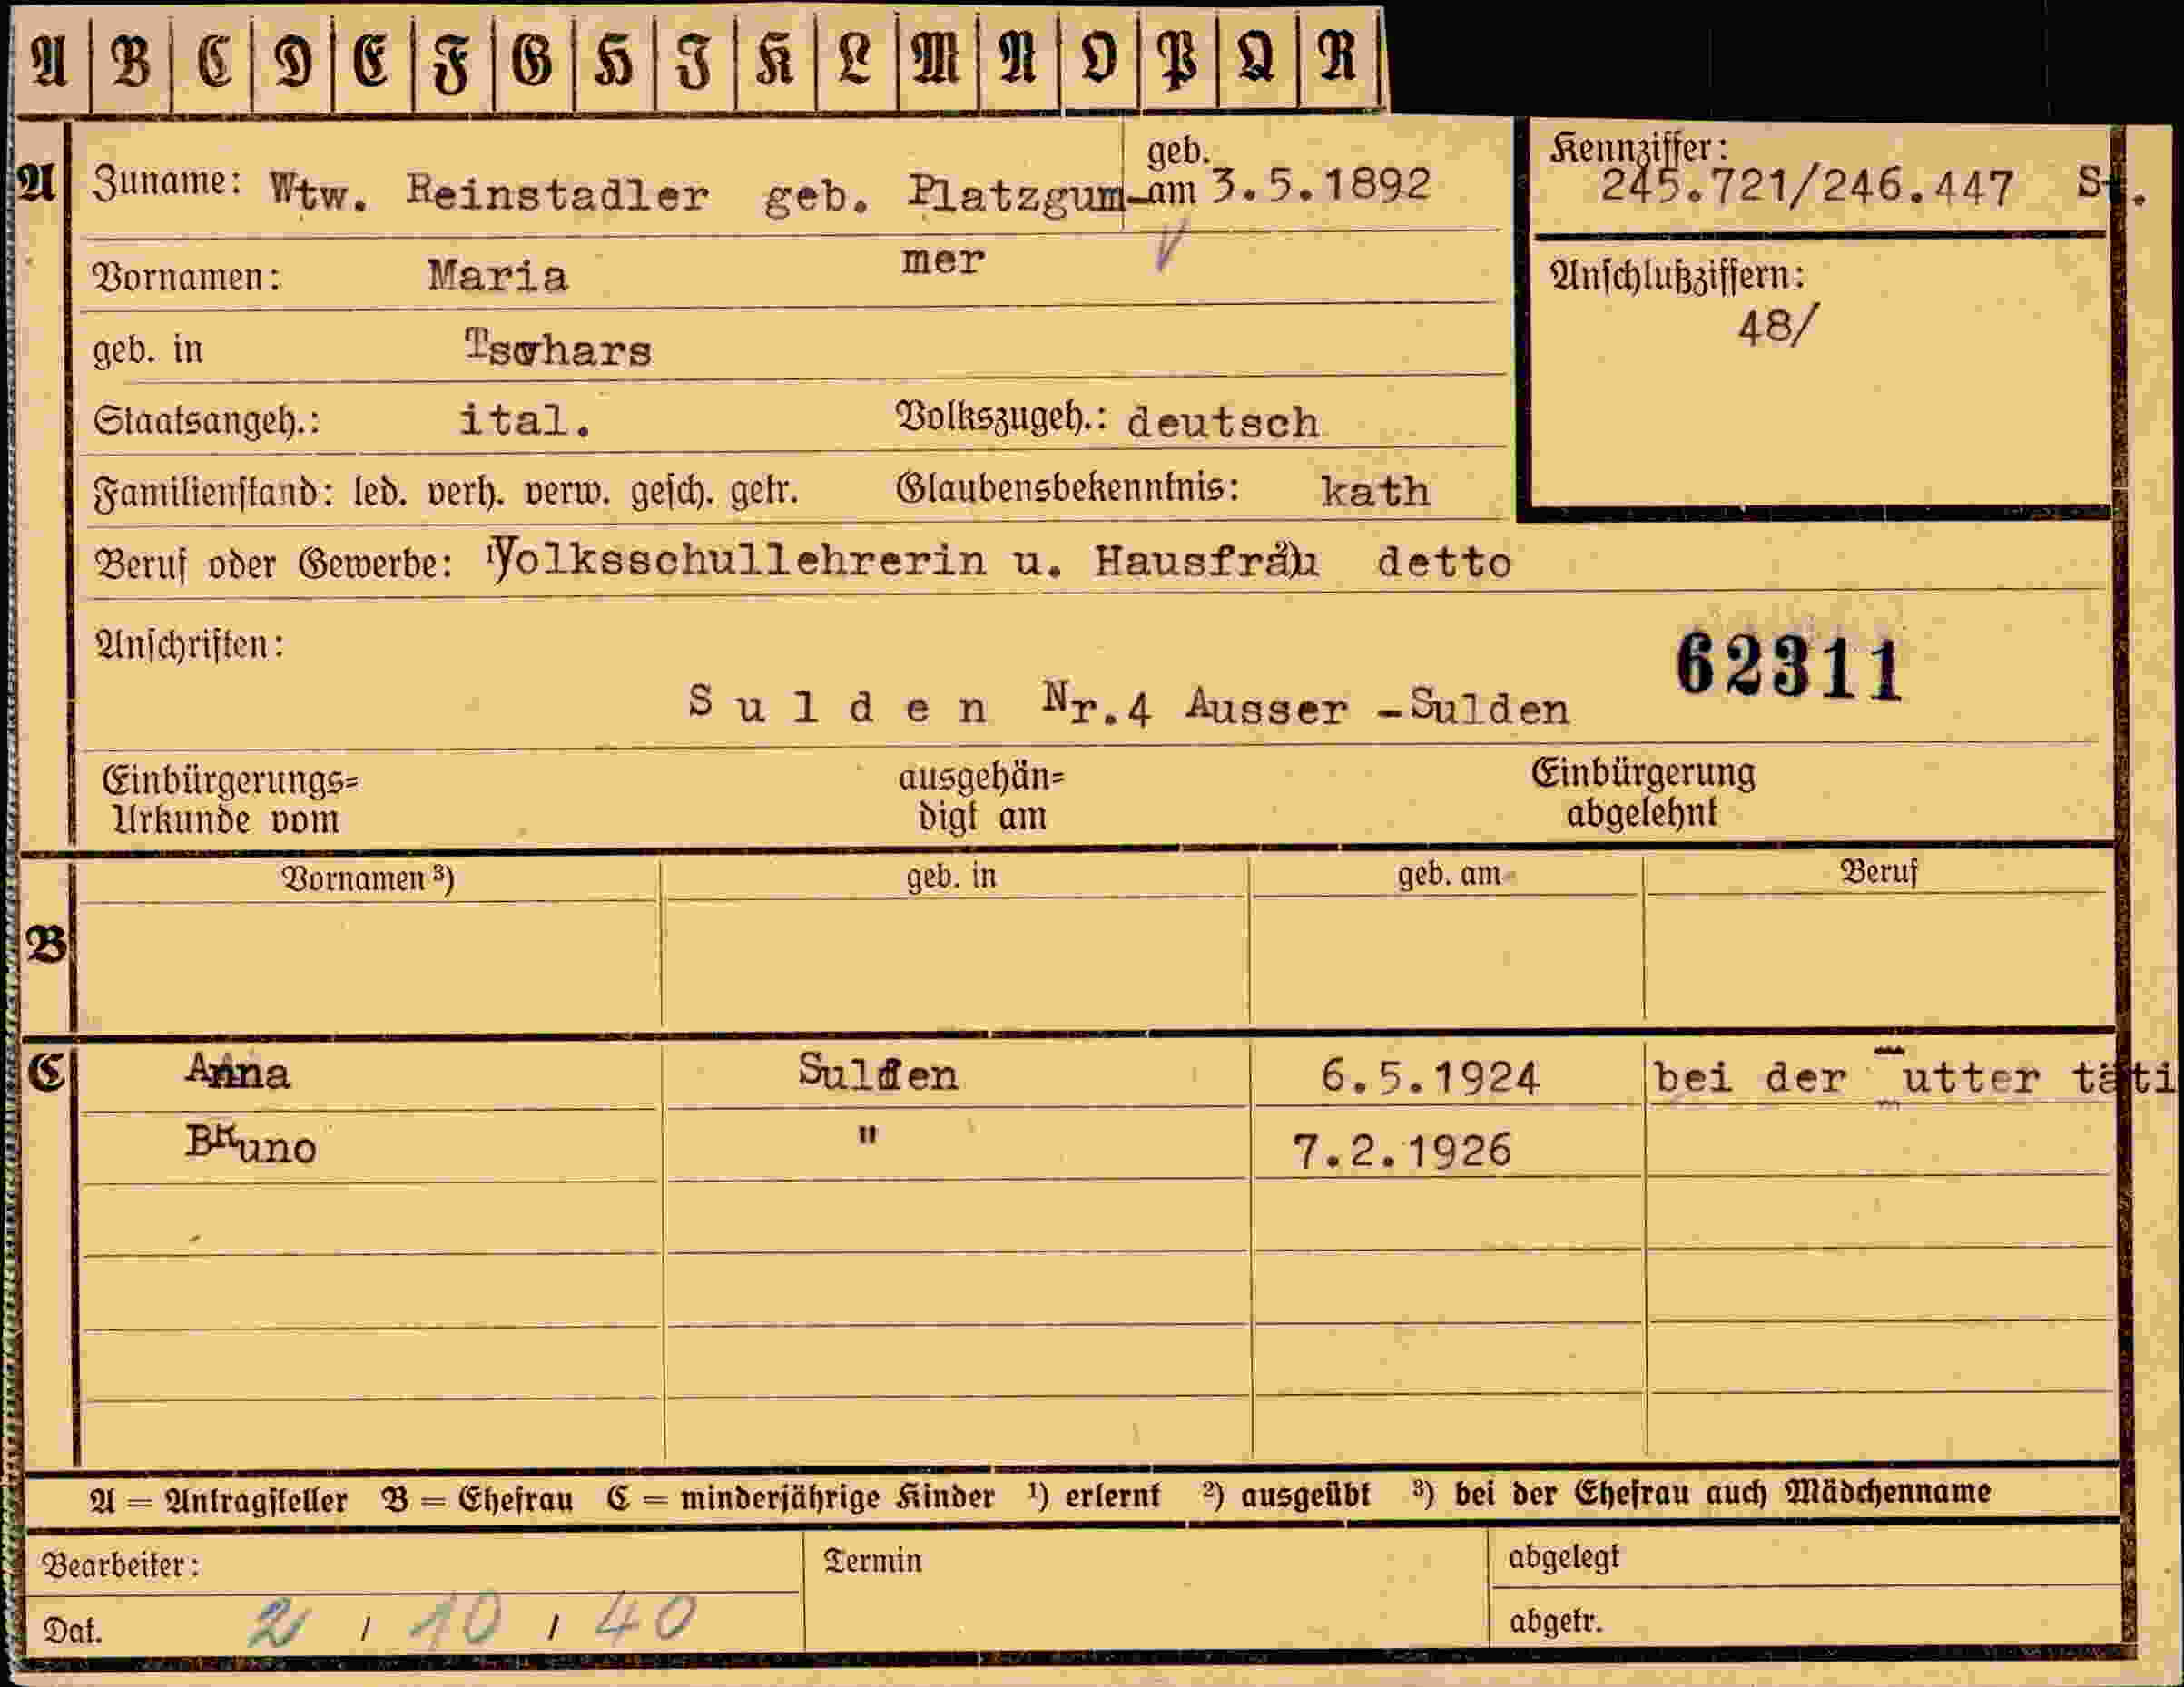 A B C D E F G H I K L M N O P Q R
A Zuname: Wtw. Reinstadler geb. Platzgum- geb. am 3.5.1892
mer
Vornamen: Maria
geb. in Tschars
Staatsangeh.: ital. Volkszugeh.: deutsch
Familienstand: led. verh. verw. gesch. getr. Glaubensbekenntnis: kath
Beruf oder Gewerbe: ¹)Volksschullehrerin u. Hausfrau ²) detto
Kennziffer:
245.721/246.447 St.
Anschlußziffern:
48/
Anschriften:
62311
Sulden Nr.4 Ausser -Sulden
Einbürgerungs= ausgehän= Einbürgerung
Urkunde vom digt am abgelehnt
B Vornamen ³) geb. in geb. am Beruf
C Anna Sulden 6.5.1924 bei der Mutter täti
Bruno " 7.2.1926
A = Antragsteller B = Ehefrau C = minderjährige Kinder ¹) erlernt ²) ausgeübt ³) bei der Ehefrau auch Mädchenname
Bearbeiter: Termin abgelegt
Dat. 2 / 10 / 40 abgetr.